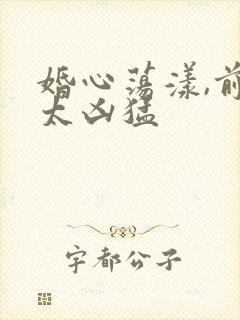 婚心荡漾,前
太凶猛
宇都公子